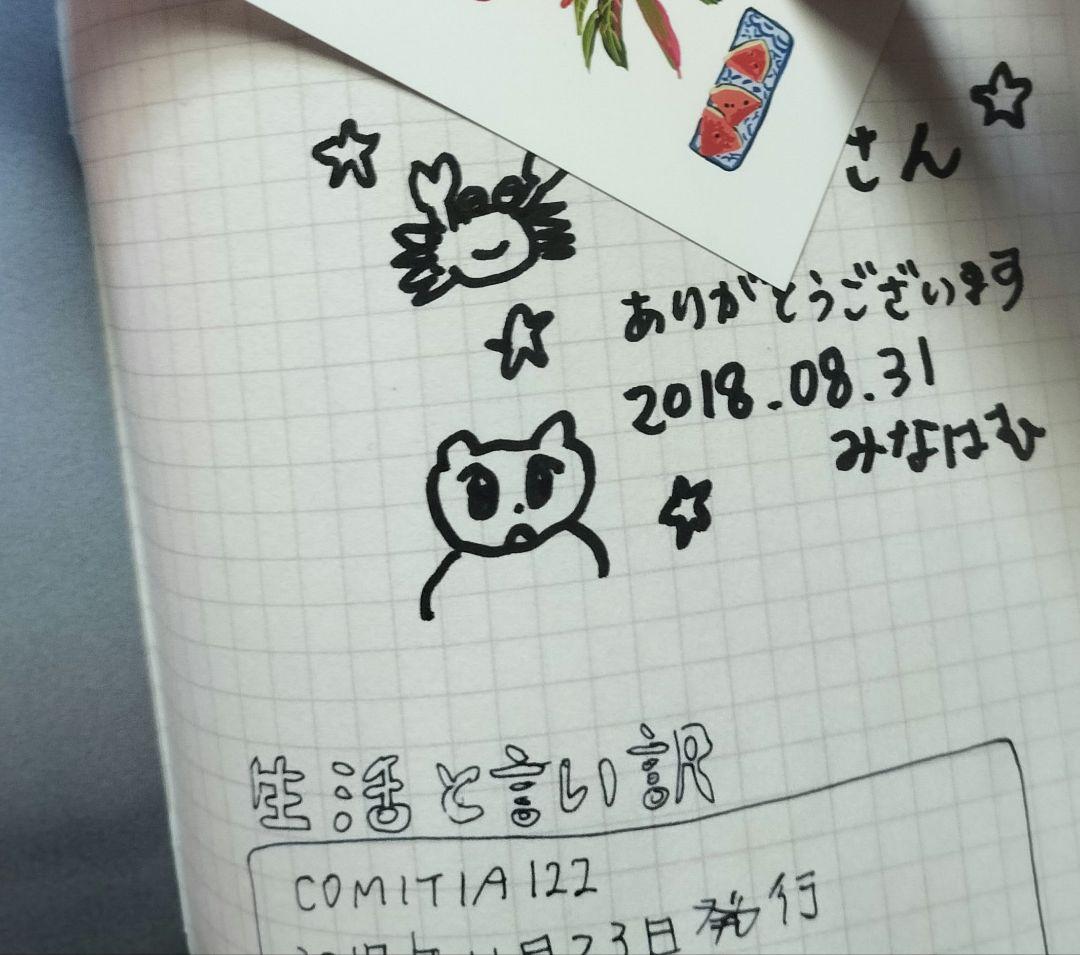 さん
ありがとうございます
2018.08.31
みなはむ
生活と言い訳
COMITIA 122
23日発行